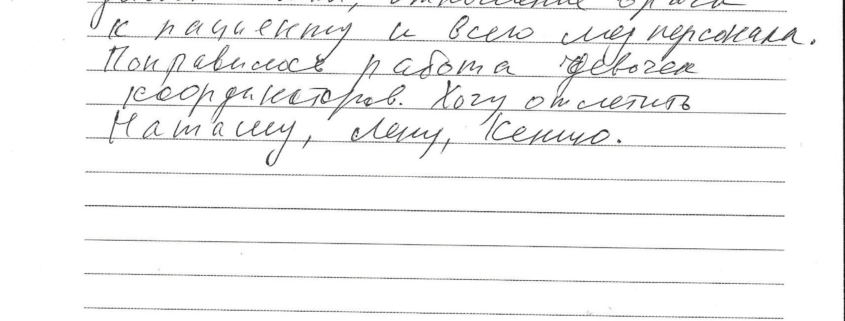 отношение врача
к пациенту и всего медперсонала.
Понравилось работа девочек
координаторов. Хочу отметить
Наташу, Лену, Ксению.